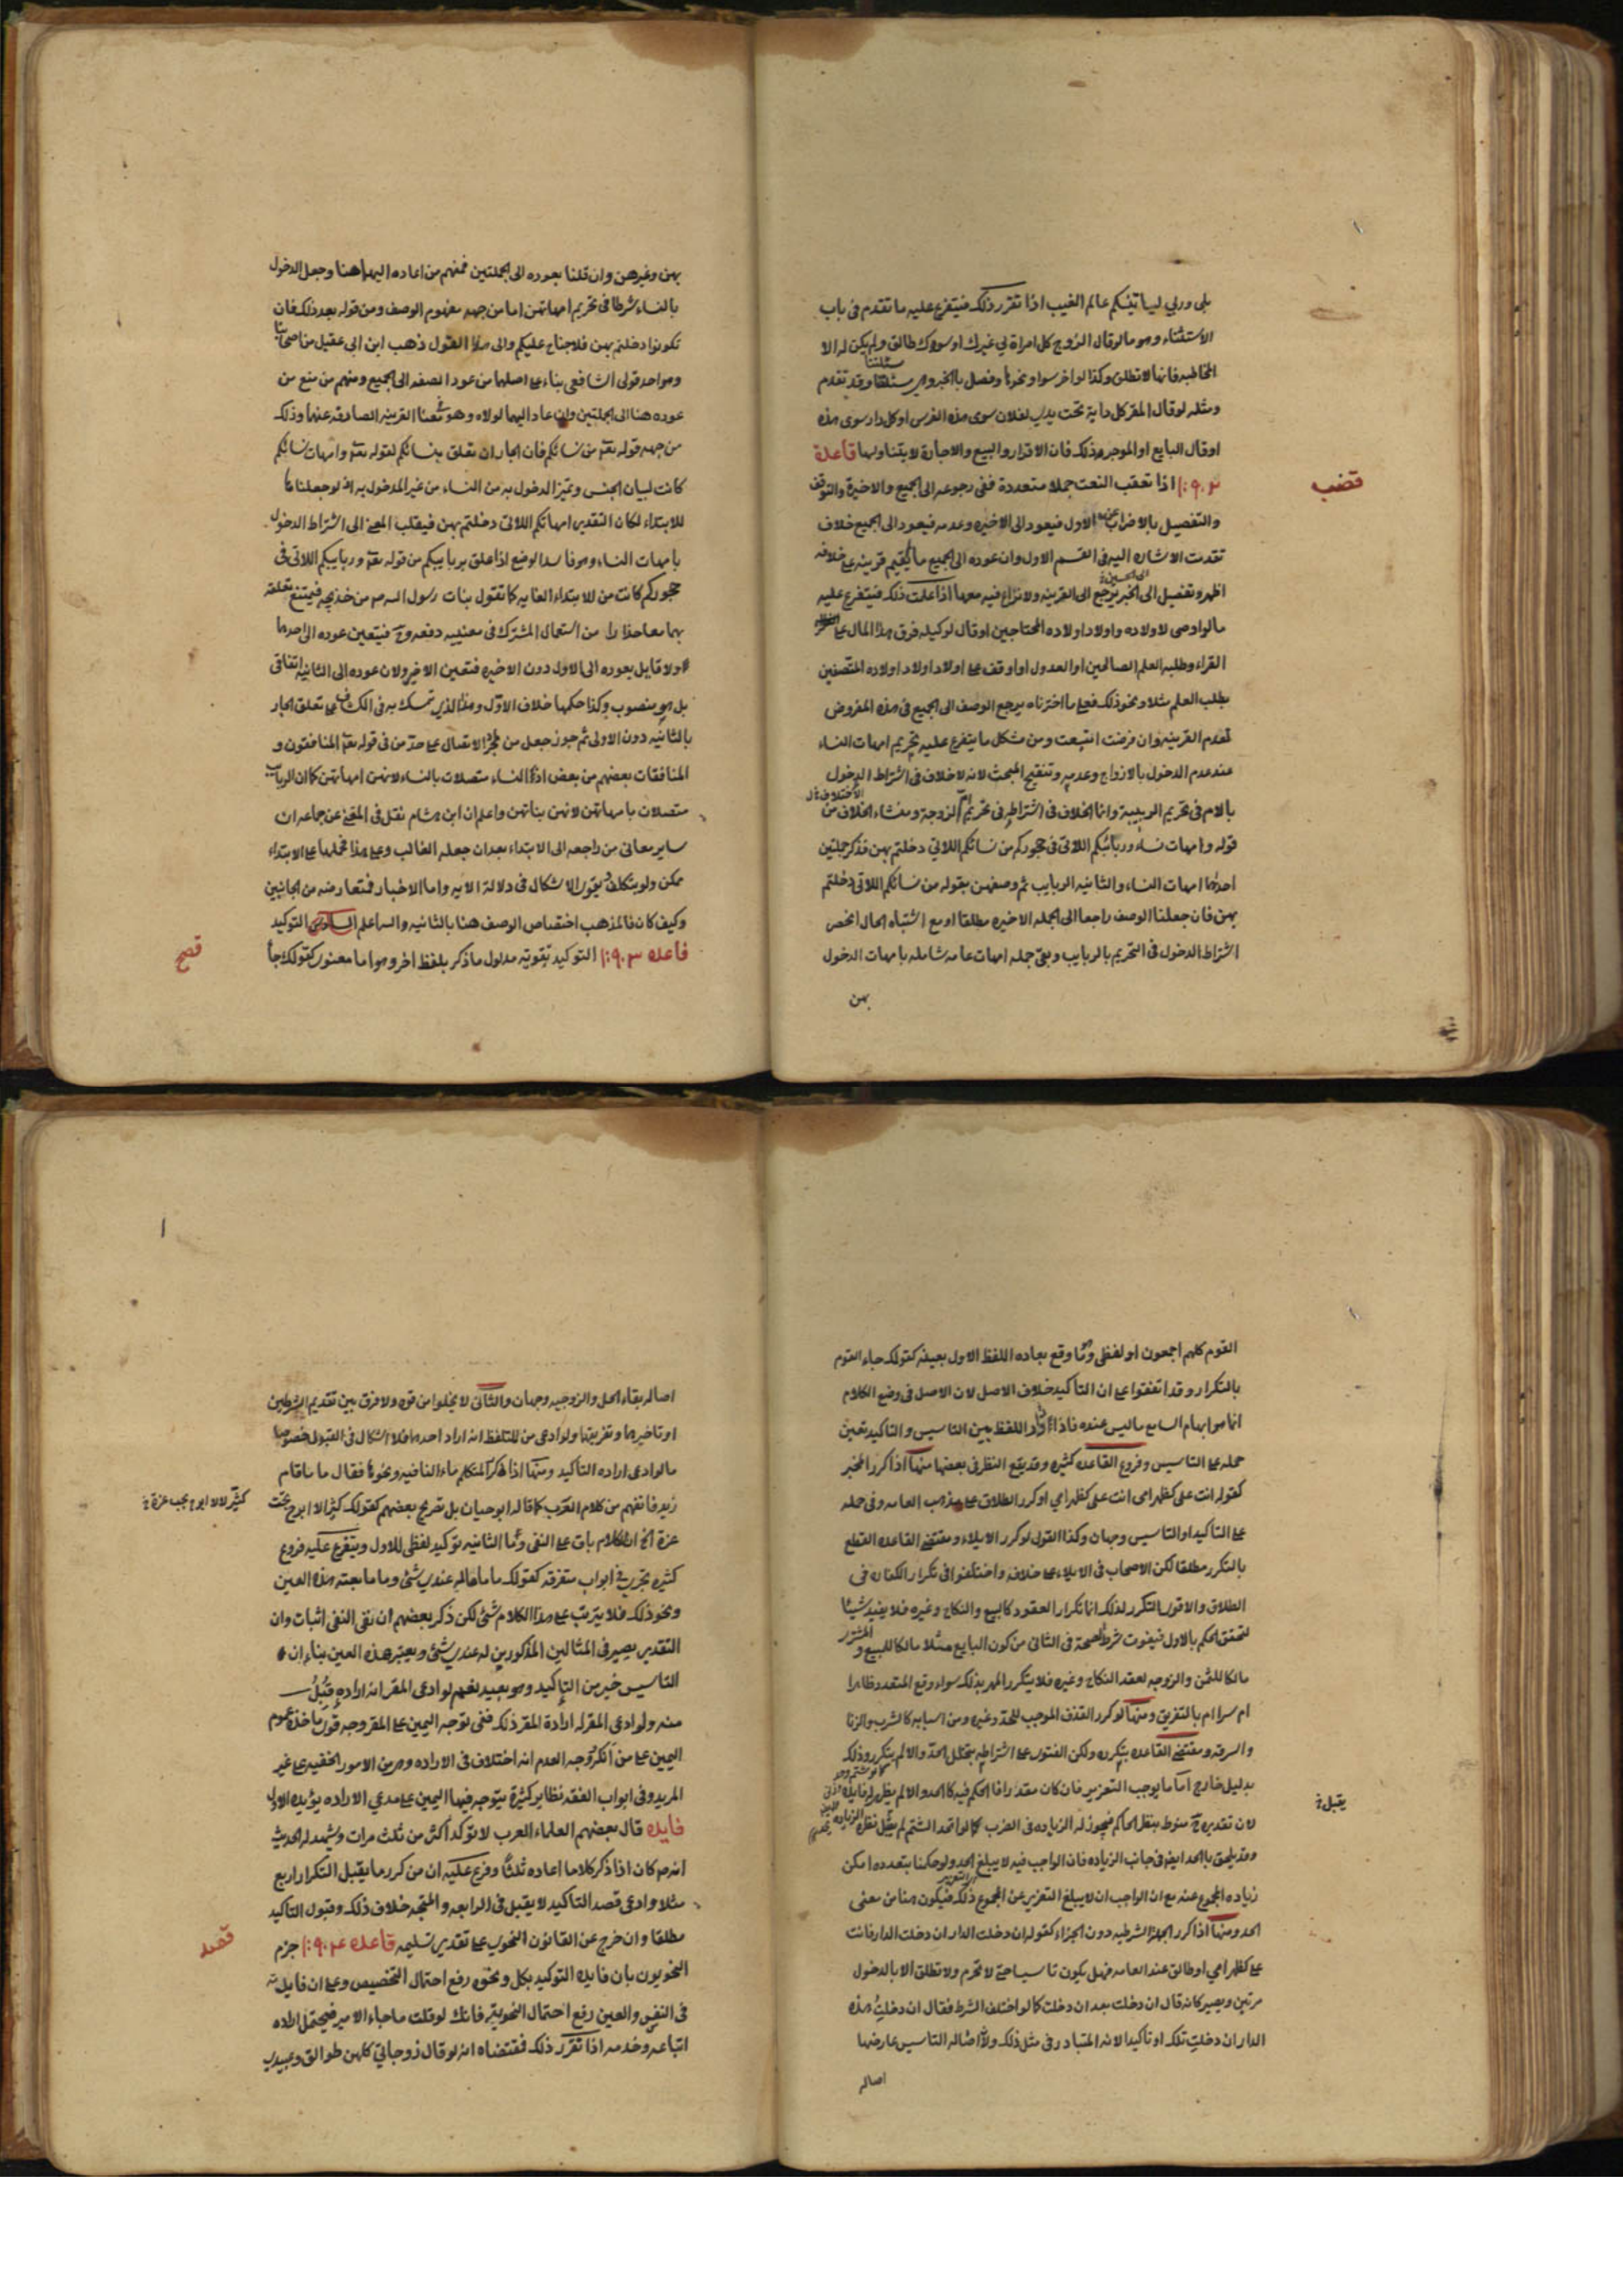 بلى وربي ليأتينكم عالم الغيب اذا تقرر ذلك فيتفرع عليه ما تقدم في باب
الاستثناء وهو ما لو قال الزوج كل امراة لي غيرك او سواك طالق ولم يكن له الا
المخاطبة فانها لا تطلق وكذا لو اخر سوا ونحوها وفصل بالخبر وهي مسئلتنا وقد تقدم
ومثله لو قال المقر كل دابة تحت يدي لفلان سوى هذه الفرس او كل دار سوى هذه
او قال البايع او الموجر هذلك فان الاقرار والبيع والاجارة لا يتناولها قاعدة
اذا تعقب النعت جملا متعددة ففي رجوعه الى الجميع والاخيرة والتوقف
قضب
والتفصيل بالاضراب عن الاول فيعود الى الاخيره وعدمه فيعود الى الجميع خلاف
تقدمت الاشاره اليه في القسم الاول وان عوده الى الجميع ما لم يقم قرينه على خلافه
اظهر وتفصيل يرجع الى القرينه ولا نزاع فيه معها اذا علمت ذلك فيتفرع عليه
ما لو اوصى لاولاده واولاد اولاده المحتاجين او قال لوكيله فرق هذا المال على
القراء وطلبه العلم الصالحين او العدول او اوقف على اولاد اولاد اولاده المتصفين
بطلب العلم مثلا ونحو ذلك فعلى ما اخترناه يرجع الوصف الى الجميع في هذه الفروض
لعدم القرينه وان فرضت اتبعت ومن مشكل ما يتفرع عليه تحريم امهات النساء
عند عدم الدخول بالازواج وعدمه وتنقيح المبحث لانه لا خلاف في اشتراط الدخول
بالام في تحريم الربيبة وانما الخلاف في اشتراطه في تحريم ام الزوجة ومنشاء الخلاف من
قوله وامهات نساء وربائبكم اللاتي في حجوركم من نسائكم اللاتي دخلتم بهن فذكر جملتين
احدهما امهات النساء والثانيه الربايب ثم وصفهن بقوله من نسائكم اللاتي دخلتم
بهن فان جعلنا الوصف راجعا الى الجمله الاخيره مطلقا او مع اشتباه الحال انحصر
اشتراط الدخول في التحريم بالربايب وبقى جمله امهات عامه شامله بامهات الدخول
بهن
بهن وغيرهن وان قلنا بعوده الى الجملتين فمنهم من اعاده اليهما هنا وجعل الدخول
بالنساء شرطا في تحريم امهاتهن اما من جهه مفهوم الوصف ومن قوله بعد ذلك فان
تكونوا دخلتم بهن فلا جناح عليكم والى هذا القول ذهب ابن ابي عقيل من اصحابنا
وهو احد قولي الشافعي بناء على اصلهما من عود الصفه الى الجميع ومنهم من منع من
عوده هنا الى الجملتين وان عاد اليهما لولاه وهو هنا القرينه الصارفه عنهما وذلك
من جهه قوله تعه من نسائكم فان الجار ان تعلق بنسائكم لقوله تعه وامهات نسائكم
كانت لبيان الجنس وتميز الدخول به من النساء من غير المدخول به اذ لو جعلناها
للابتداء لكان التقدير امهاتكم اللاتي دخلتم بهن فيقلب المعنى الى اشتراط الدخول
بامهات النساء وهو فاسد الوضع اذا علق بربايبكم من قوله تعه وربايبكم اللاتي في
حجوركم كانت من للابتداء الغايه كما تقول بنات رسول الله ص من خديجه فيمتنع تعلقه
بهما معا حذارا من استعمال المشترك في معنييه دفعه وح فيتعين عوده الى احدهما
ولا قايل بعوده الى الاول دون الاخيره فتعين الاخير ولان عوده الى الثانيه اتفاقي
بل هو منصوب وكذا حكمها خلاف الاول وهذا الذي تمسك به في الكشاف على تعلق الجار
بالثانيه دون الاولى ثم جوز جعل من لمجرد الاتصال على حد من في قوله تعه المنافقون و
المنافقات بعضهم من بعض اذ النساء متصلات بالنساء لانهن امهاتهن كما ان الربائب
متصلات بامهاتهن لانهن بناتهن واعلم ان ابن هشام نقل في المغني عن جماعه ان
ساير معاني من راجعه الى الابتداء بعد ان جعله الغالب وعلى هذا فحملها على الابتداء
ممكن ولو بتكلف ويقوى الاشكال في دلالة الايه واما الاخبار فمتعارضه من الجانبين
وكيف كان فالمذهب اختصاص الوصف هنا بالثانيه والله اعلم السادس التوكيد
قاعده التوكيد تقويه مدلول ما ذكر بلفظ اخر وهو اما معنوي كقولك جا
القوم كلهم اجمعون او لفظي وهو ما وقع بعاده اللفظ الاول بعينه كقولك جاء القوم
بالتكرار وقد اتفقوا على ان التاكيد خلاف الاصل لان الاصل في وضع الكلام
انما هو ابهام السامع ما ليس عنده فاذا دار اللفظ بين التاسيس والتاكيد تعين
حمله على التاسيس وفروع القاعده كثيره وقد يقع النظر في بعضها منها اذا كرر المخبر
كقوله انت علي كظهر امي انت علي كظهر امي او كرر الطلاق على مذهب العامه وفي حمله
على التاكيد او التاسيس وجهان وكذا القول لو كرر الايلاء ومقتضى القاعده القطع
بالتكرر مطلقا لكن الاصحاب في الايلاء على خلافه واختلفوا في تكرار الكفاره في
الطلاق والاقوى التكرر لذلك اما تكرار العقود كالبيع والنكاح وغيره فلا يفيد شيئا
لتحقق الحكم بالاول فيفوت شرط الصحة في الثاني من كون البايع مثلا مالكا للمبيع والمشتري
مالكا للثمن والزوجه لعقد النكاح وغيره فلا يتكرر المهر بذلك سواء وقع المتعدد ظاهرا
ام سرا ام بالتفريق ومنها لو كرر القذف الموجب للحد وغيره ومن اسبابه كالشرب والزنا
والسرقه ومقتضى القاعده بتكرره ولكن الفتوى على اشتراطه بتخلل الحد والا لم يتكرر وذلك
بدليل خارج اما ما يوجب التعزير فان كان مقدرا فالحكم فيه كالحد والا لم يظهر له فايده
يقبل خ
لان تقديره ح منوط بنظر الحاكم فيجوز له الزياده في الضرب كما لو اتحد الشتم
وقد يلحق بالحد ايضا في جانب الزياده فان الواجب فيه لا يبلغ الحد ولو حكمنا بتعدده امكن
زياده المجموع عنه مع ان الواجب ان لا يبلغ التعزير عن المجموع ذلك فيكون هنا من معنى
الحد ومنها اذا كرر الجمله الشرطيه دون الجزاء كقوله ان دخلت الدار ان دخلت الدار فانت
على كظهر امي او طالق عند العامه فهل يكون تاسيسا حتى لا تحرم ولا تطلق الا بالدخول
مرتين ويصير كانه قال ان دخلت بعد ان دخلت كما لو اختلف الشرط فقال ان دخلت هذه
الدار ان دخلت تلك او تاكيدا لانه المتبادر في مثل ذلك ولان اصاله التاسيس عارضها
اصاله
اصاله بقاء الحل والزوجيه وجهان والثاني لا يخلوا من قوه ولا فرق بين تقديم الشرطين
او تاخيرهما وتفريقهما ولو ادعى من المتلفظ انه اراد احدهما فلا اشكال في القبول خصوصا
ما لو ادعى اراده التاكيد ومنها اذا كرر المتكلم ماء النافيه ونحوها فقال ما ما قام
زيد فانهم من كلام العرب كما قاله ابو حيان بل تصريح بعضهم كقولك كثيرا لا ابوح بحب
كثير لا لا ابوح بحب عزة خ
عزة الخ ان الكلام باق على النفي واما الثانيه توكيد لفظي للاول ويتفرع عليه فروع
كثيره تجري في ابواب متفرقه كقولك ما ما له عندي شئ وما ما بعته هذه العين
ونحو ذلك فلا يترتب على هذا الكلام شئ لكن ذكر بعضهم ان نفي النفي اثبات وان
التقدير يصير في المثالين المذكورين له عندي شئ وبعته هذه العين بناء ان
التاسيس خير من التاكيد وهو بعيد نعم لو ادعى المقر انه اراده قبل
منه ولو ادعى المقر له ارادة المقر ذلك ففي توجه اليمين على المقر وجه قوي ماخذه عموم
اليمين على من انكر ووجه العدم انه اختلاف في الاراده وهي من الامور الخفيه على غير
المريد وفي ابواب الفقه نظاير كثيرة يتوجه فيها اليمين على مدعي الاراده يؤيده الاول
فايده قال بعضهم العلماء العرب لا توكد اكثر من ثلث مرات ويشهد له الحديث
انه ص كان اذا ذكر كلاما اعاده ثلثا وفرع عليه ان من كرر ما يقبل التكرار اربع
مثلا وادعى قصد التاكيد لا يقبل في الرابعه والمتجه خلاف ذلك وقبول التاكيد
مطلقا وان خرج عن القانون النحوي على تقدير تسليمه قاعده جزم
النحويون بان فايده التوكيد بكل ونحوه رفع احتمال التخصيص وعلى ان فايدته
في النفس والعين رفع احتمال التجوز فانك لو قلت ما جاء الامير فيحتمل اراده
اتباعه وخدمه اذا تقرر ذلك فمقتضاه انه لو قال زوجاتي كلهن طوالق وعبيدي